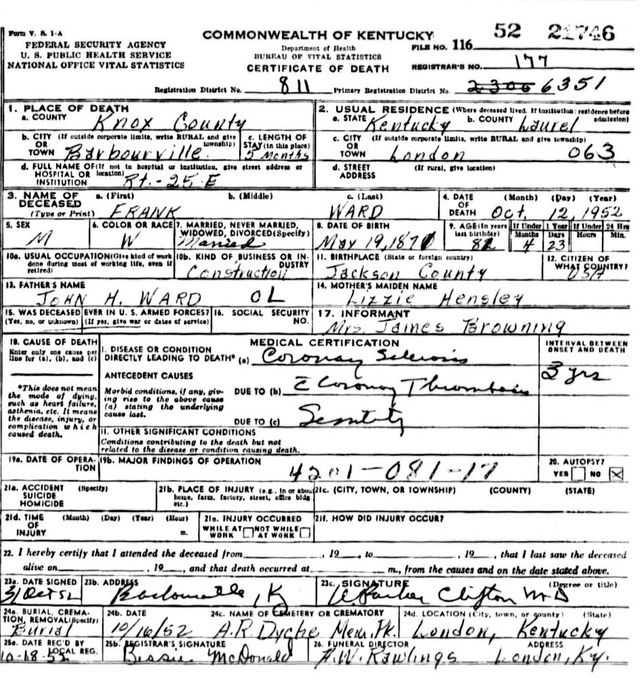 Form V. S. 1-A
COMMONWEALTH OF KENTUCKY
52 21746
FEDERAL SECURITY AGENCY
U. S. PUBLIC HEALTH SERVICE
NATIONAL OFFICE VITAL STATISTICS
Department of Health
BUREAU OF VITAL STATISTICS
CERTIFICATE OF DEATH
FILE NO. 116
REGISTRAR'S NO. 177
Registration District No. 811
Primary Registration District No. 2306 6351
1. PLACE OF DEATH
a. COUNTY Knox County
2. USUAL RESIDENCE (Where deceased lived. If institution: residence before admission)
a. STATE Kentucky b. COUNTY Laurel
b. CITY (If outside corporate limits, write RURAL and give township) OR TOWN Barbourville
c. LENGTH OF STAY (in this place) 5 Months
c. CITY (If outside corporate limits, write RURAL and give township) OR TOWN London 063
d. FULL NAME OF (If not in hospital or institution, give street address or location) HOSPITAL OR INSTITUTION Rt.-25-E
d. STREET ADDRESS (If rural, give location)
3. NAME OF DECEASED (Type or Print)
a. (First) FRANK
b. (Middle)
c. (Last) WARD
4. DATE OF DEATH (Month) (Day) (Year) Oct. 12, 1952
5. SEX M
6. COLOR OR RACE W
7. MARRIED, NEVER MARRIED, WIDOWED, DIVORCED (Specify) Married
8. DATE OF BIRTH May 19, 1870
9. AGE (In years last birthday) 82
If Under 1 Year Months 4 Days 23
If Under 24 Hrs. Hours Min.
10a. USUAL OCCUPATION (Give kind of work done during most of working life, even if retired)
10b. KIND OF BUSINESS OR INDUSTRY Construction
11. BIRTHPLACE (State or foreign country) Jackson County
12. CITIZEN OF WHAT COUNTRY? USA
13. FATHER'S NAME JOHN H. WARD OL
14. MOTHER'S MAIDEN NAME Lizzie Hensley
15. WAS DECEASED EVER IN U. S. ARMED FORCES? (Yes, no, or unknown) (If yes, give war or dates of service)
16. SOCIAL SECURITY NO.
17. INFORMANT Mrs. James Browning
18. CAUSE OF DEATH
Enter only one cause per line for (a), (b), and (c)
MEDICAL CERTIFICATION
INTERVAL BETWEEN ONSET AND DEATH
I. DISEASE OR CONDITION DIRECTLY LEADING TO DEATH* (a) Coronary Sclerosis
3 yrs
*This does not mean the mode of dying, such as heart failure, asthenia, etc. It means the disease, injury, or complication which caused death.
ANTECEDENT CAUSES
Morbid conditions, if any, giving rise to the above cause (a) stating the underlying cause last.
DUE TO (b) Coronary Thrombosis
DUE TO (c)
II. OTHER SIGNIFICANT CONDITIONS
Conditions contributing to the death but not related to the disease or condition causing death.
19a. DATE OF OPERATION
19b. MAJOR FINDINGS OF OPERATION
4201-081-17
20. AUTOPSY? YES NO
21a. ACCIDENT SUICIDE HOMICIDE (Specify)
21b. PLACE OF INJURY (e.g., in or about home, farm, factory, street, office bldg. etc.)
21c. (CITY, TOWN, OR TOWNSHIP) (COUNTY) (STATE)
21d. TIME OF INJURY (Month) (Day) (Year) (Hour) m.
21e. INJURY OCCURRED WHILE AT WORK NOT WHILE AT WORK
21f. HOW DID INJURY OCCUR?
22. I hereby certify that I attended the deceased from , 19 , to , 19 , that I last saw the deceased
alive on , 19 , and that death occurred at m., from the causes and on the date stated above.
23a. DATE SIGNED 31 Oct 52
23b. ADDRESS Barbourville, Ky
23c. SIGNATURE Clifton M.D (Degree or title)
24a. BURIAL, CREMATION, REMOVAL (Specify) Burial
24b. DATE 10/16/52
24c. NAME OF CEMETERY OR CREMATORY A.R. Dyche Mem. Pk.
24d. LOCATION (City, town, or county) (State) London, Kentucky
25a. DATE REC'D BY LOCAL REG.
25b. REGISTRAR'S SIGNATURE Bessie McDonald
26. FUNERAL DIRECTOR Rawlings
ADDRESS London, Ky.